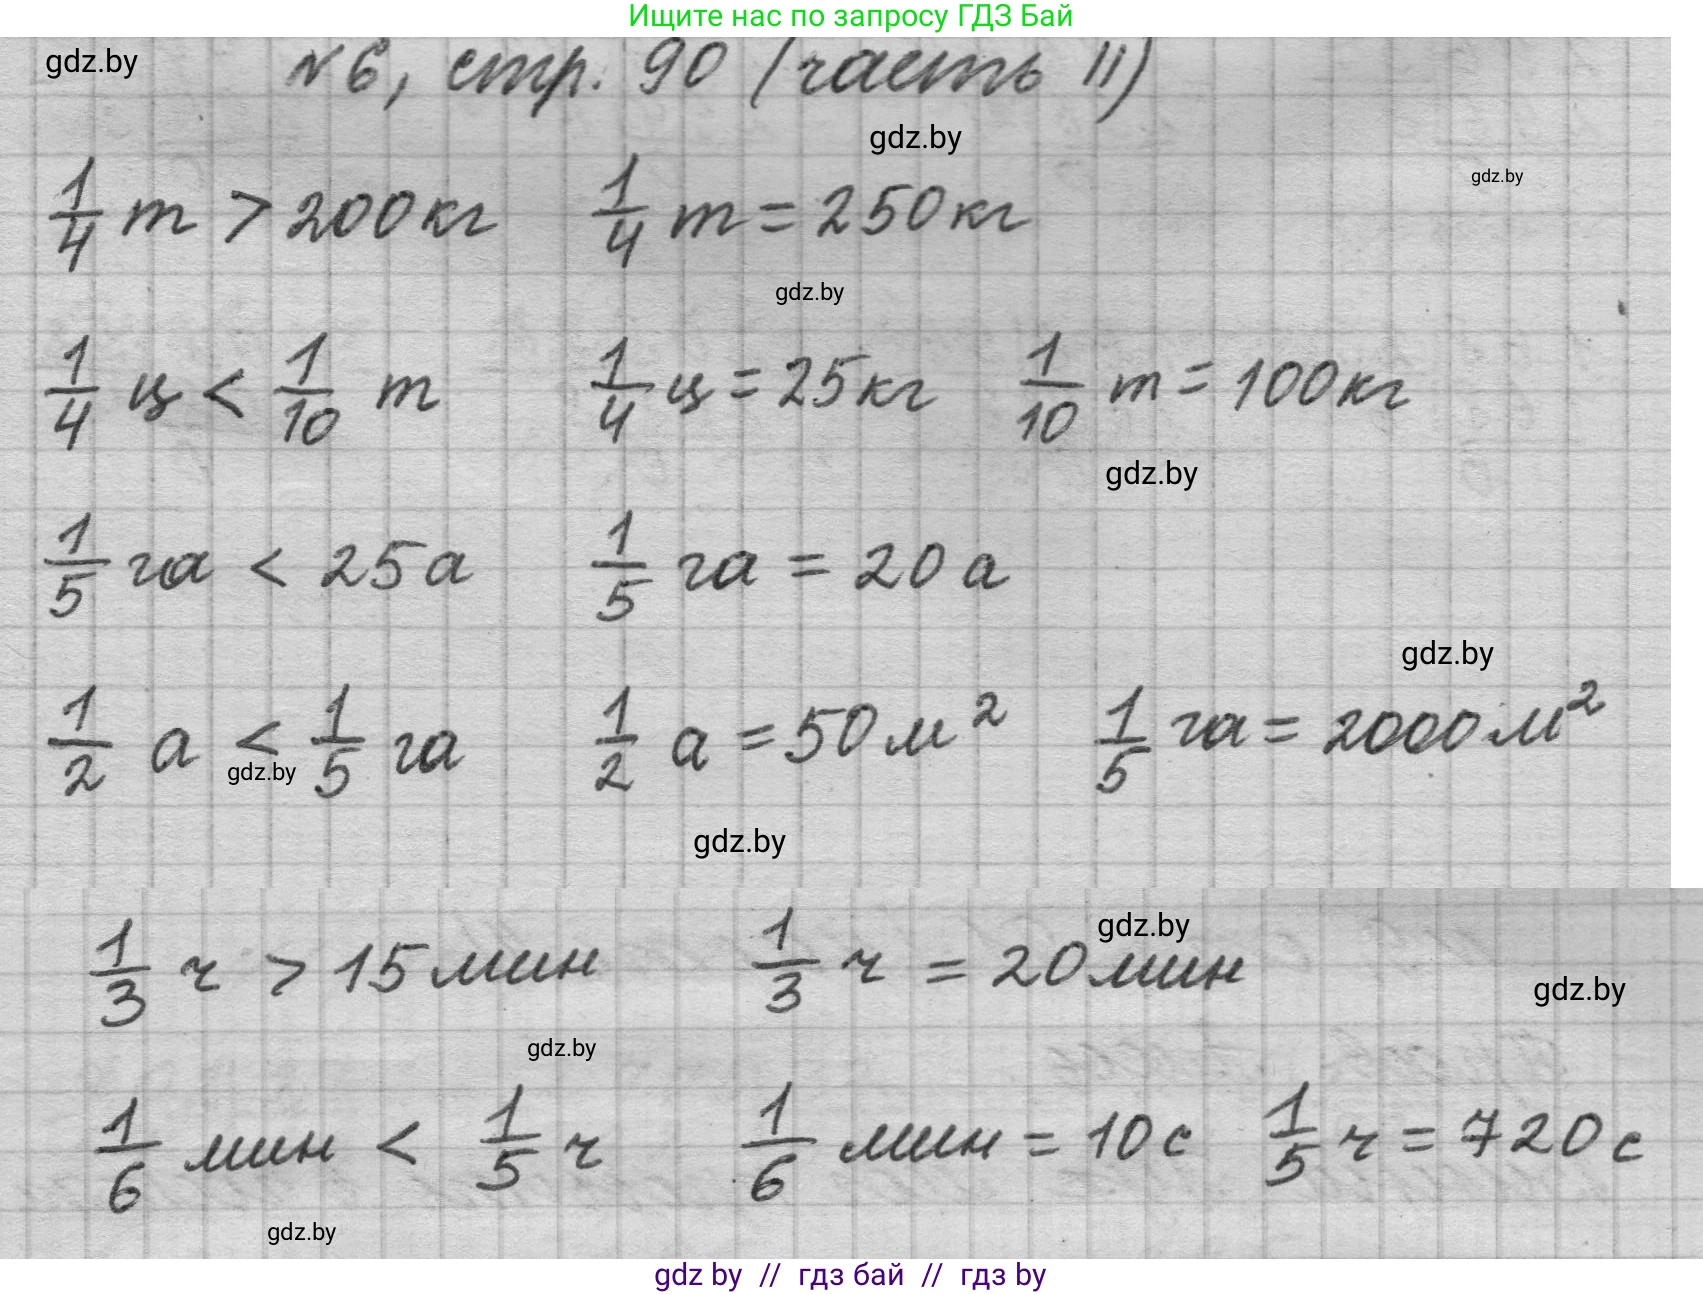 Ищите нас по запросу ГДЗ Бай
gdz.by
№6, стр. 90 (часть II)
gdz.by
gdz.by
1/4 т > 200 кг 1/4 т = 250 кг
gdz.by
1/4 ц < 1/10 т 1/4 ц = 25 кг 1/10 т = 100 кг
gdz.by
1/5 га < 25 а 1/5 га = 20 а
gdz.by
1/2 а < 1/5 га 1/2 а = 50 м² 1/5 га = 2000 м²
gdz.by
gdz.by
gdz.by
1/3 ч > 15 мин 1/3 ч = 20 мин
gdz.by
gdz.by
1/6 мин < 1/5 ч 1/6 мин = 10 с 1/5 ч = 720 с
gdz.by
gdz by // гдз бай // гдз by